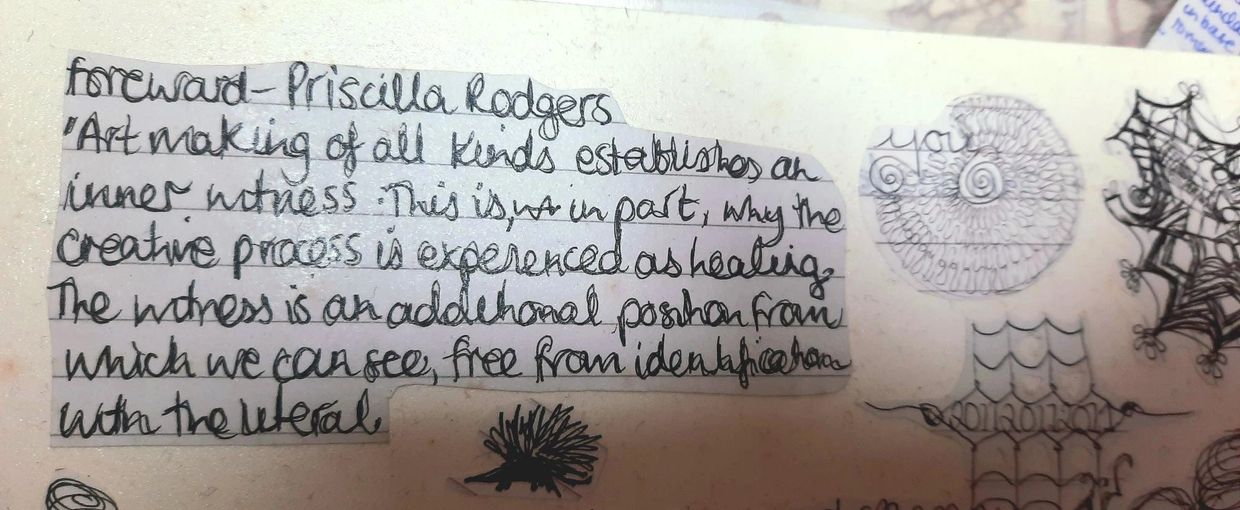 foreward - Priscilla Rodgers
"Art making of all kinds establishes an
inner witness. This is, in part, why the
creative process is experienced as healing.
The witness is an additional position from
which we can see, free from identification
with the literal.
you
2011 2011 2011
in base